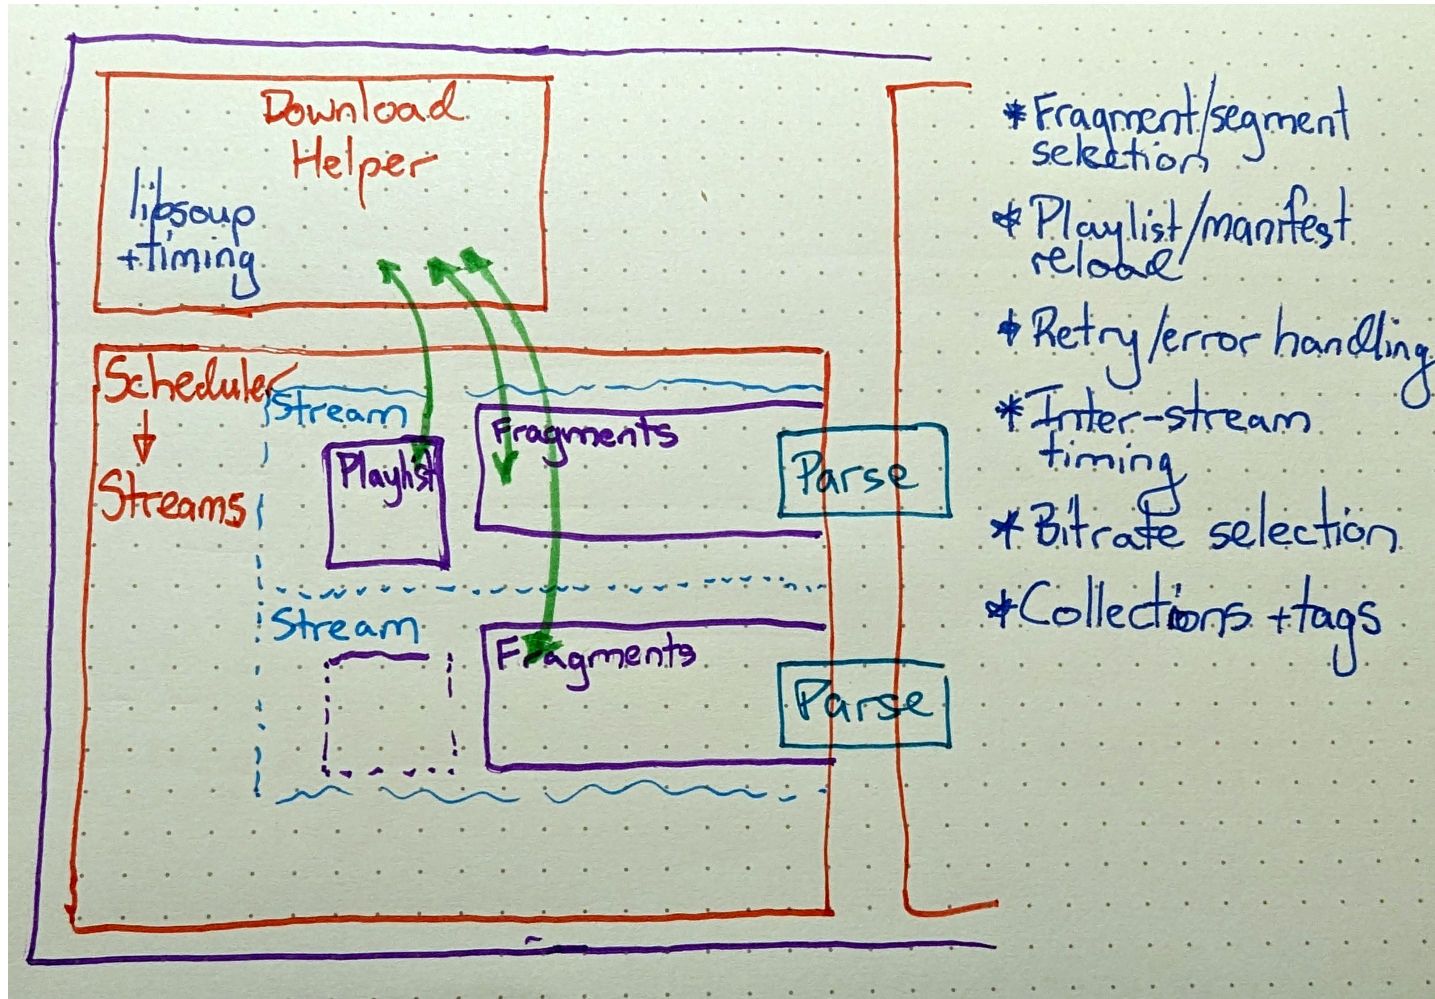 Download
Helper
libsoup
+timing
Scheduler
Streams
Stream
Playlist
Fragments
Parse
Stream
Fragments
Parse
*Fragment/segment
selection
*Playlist/manifest
reload
*Retry/error handling
*Inter-stream
timing
*Bitrate selection
*Collections +tags